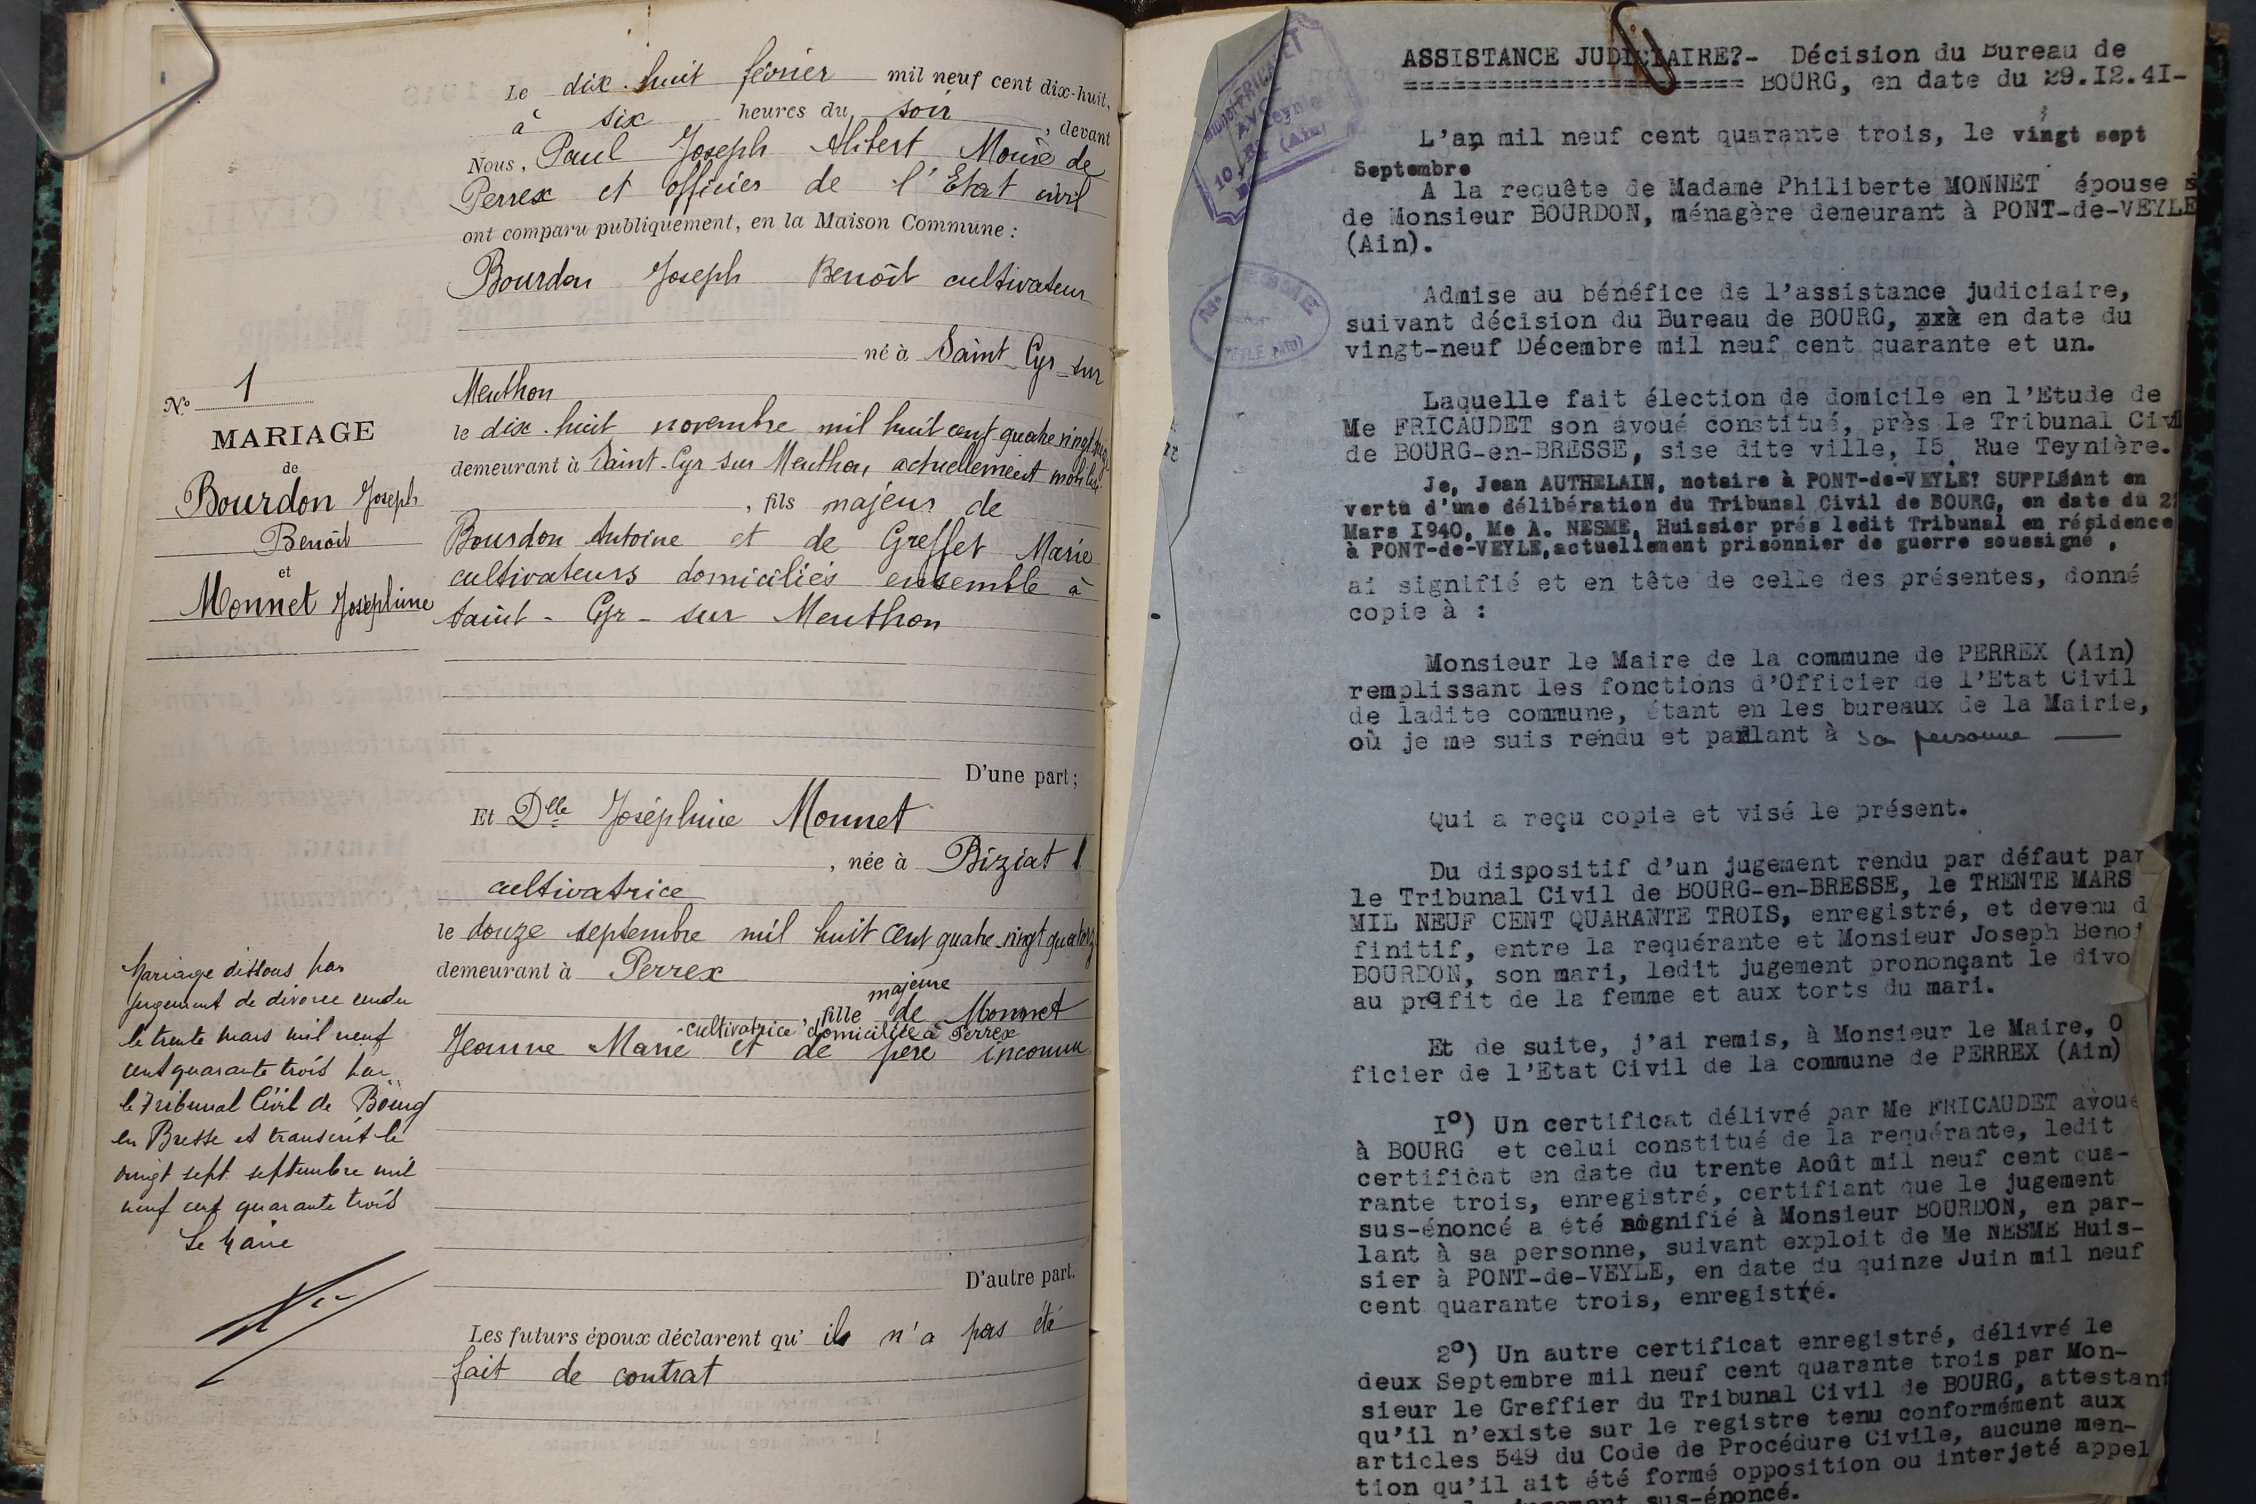 Le dix-huit février mil neuf cent dix-huit,
à six heures du soir, devant
Nous, Paul Joseph Alibert Maire de
Perrex et officier de l'Etat civil
ont comparu publiquement, en la Maison Commune :
Bourdon Joseph Benoît cultivateur
né à Saint-Cyr-sur
Menthon
le dix-huit novembre mil huit cent quatre vingt
demeurant à Saint-Cyr sur Menthon, actuellement mobilisé
, fils majeur de
Bourdon Antoine et de Greffet Marie
cultivateurs domiciliés ensemble à
Saint-Cyr-sur Menthon
D'une part ;
Et Dlle Joséphine Monnet
, née à Biziat
cultivatrice
le douze septembre mil huit cent quatre-vingt quatorze
demeurant à Perrex
majeure
, fille de Monnet
cultivatrice domiciliée à Perrex
Jeanne Marie et de père inconnu
D'autre part.
Les futurs époux déclarent qu'il n'a pas été
fait de contrat
N° 1
MARIAGE
de
Bourdon Joseph
Benoît
et
Monnet Joséphine
Mariage dissous par
jugement de divorce rendu
le trente mars mil neuf
cent quarante trois par
le Tribunal Civil de Bourg
en Bresse et transcrit le
vingt sept septembre mil
neuf cent quarante trois
Le Maire
ASSISTANCE JUDICIAIRE?- Décision du Bureau de
==================== BOURG, en date du 29.I2.4I-
L'an mil neuf cent quarante trois, le vingt sept
Septembre
A la requête de Madame Philiberte MONNET épouse
de Monsieur BOURDON, ménagère demeurant à PONT-de-VEYLE
(Ain).
Admise au bénéfice de l'assistance judiciaire,
suivant décision du Bureau de BOURG, en date du
vingt-neuf Décembre mil neuf cent quarante et un.
Laquelle fait élection de domicile en l'Etude de
Me FRICAUDET son avoué constitué, près le Tribunal Civil
de BOURG-en-BRESSE, sise dite ville, I5, Rue Teynière.
Je, Jean AUTHELAIN, notaire à PONT-de-VEYLE? SUPPLéAnt en
vertu d'une délibération du Tribunal Civil de BOURG, en date du 2
Mars I940, Me A. NESME, Huissier prés ledit Tribunal en résidence
à PONT-de-VEYLE,actuellement prisonnier de guerre soussigné ,
ai signifié et en tête de celle des présentes, donné
copie à :
Monsieur le Maire de la commune de PERREX (Ain)
remplissant les fonctions d'Officier de l'Etat Civil
de ladite commune, étant en les bureaux de la Mairie,
où je me suis rendu et parlant à sa personne
Qui a reçu copie et visé le présent.
Du dispositif d'un jugement rendu par défaut par
le Tribunal Civil de BOURG-en-BRESSE, le TRENTE MARS
MIL NEUF CENT QUARANTE TROIS, enregistré, et devenu d
finitif, entre la requérante et Monsieur Joseph Benoi
BOURDON, son mari, ledit jugement prononçant le divo
au profit de la femme et aux torts du mari.
Et de suite, j'ai remis, à Monsieur le Maire, O
ficier de l'Etat Civil de la commune de PERREX (Ain)
I°) Un certificat délivré par Me FRICAUDET avoué
à BOURG et celui constitué de la requérante, ledit
certificat en date du trente Août mil neuf cent qua-
rante trois, enregistré, certifiant que le jugement
sus-énoncé a été signifié à Monsieur BOURDON, en par-
lant à sa personne, suivant exploit de Me NESME Huis-
sier à PONT-de-VEYLE, en date du quinze Juin mil neuf
cent quarante trois, enregistré.
2°) Un autre certificat enregistré, délivré le
deux Septembre mil neuf cent quarante trois par Mon-
sieur le Greffier du Tribunal Civil de BOURG, attestant
qu'il n'existe sur le registre tenu conformément aux
articles 549 du Code de Procédure Civile, aucune men-
tion qu'il ait été formé opposition ou interjeté appel
jugement sus-énoncé.